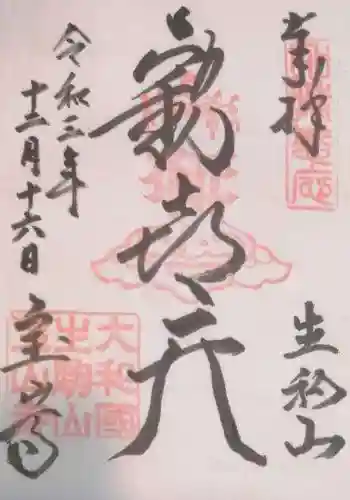 奉拝
生駒山
歓喜天
令和三年
十二月十六日
宝山寺
大和國
生駒山
寳山寺